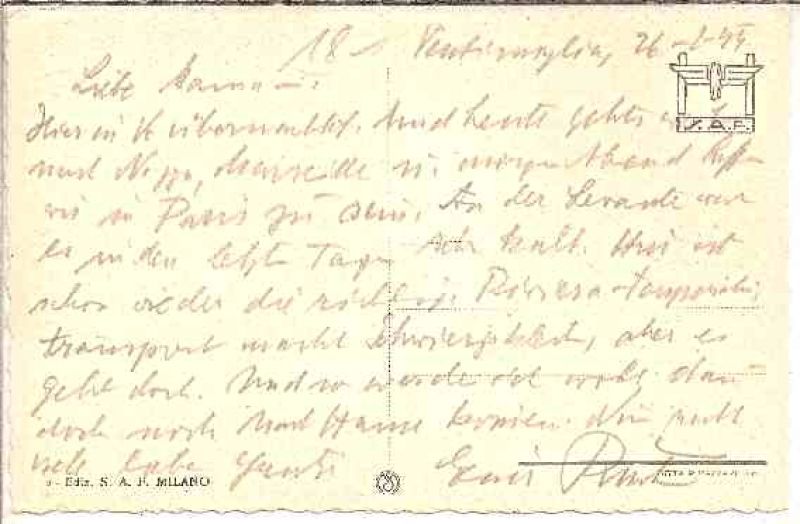 18 Ventimiglia, 26
Liebe Mama!
Hier in V. übernachtet. Und heute geht's
nach Nizza, Marseille u. morgen Abend hoffen
wir in Paris zu sein. An der Levante war
es in den letzten Tagen sehr kalt. Hier ist
schon wieder die richtige Riviera
transport macht Schwierigkeiten, aber es
geht doch. Und so werde ich wohl dann
doch noch nach Hause kommen. Nun recht
viele liebe Grüsse Euer
S.A.F.
Ediz. S. A. F. MILANO